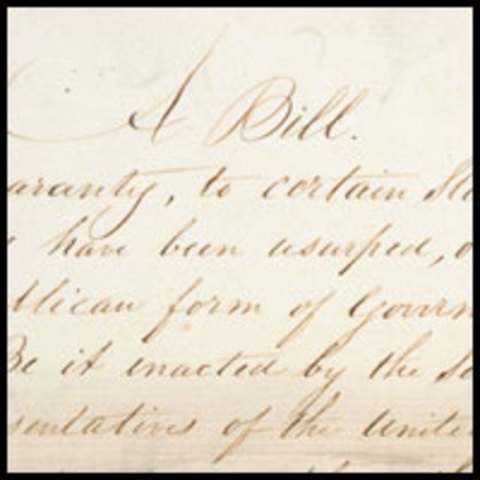 A Bill.
aranty, to certain Sta
have been usurped, o
blican form of Govern
Be it enacted by the Se
sentatives of the Unite